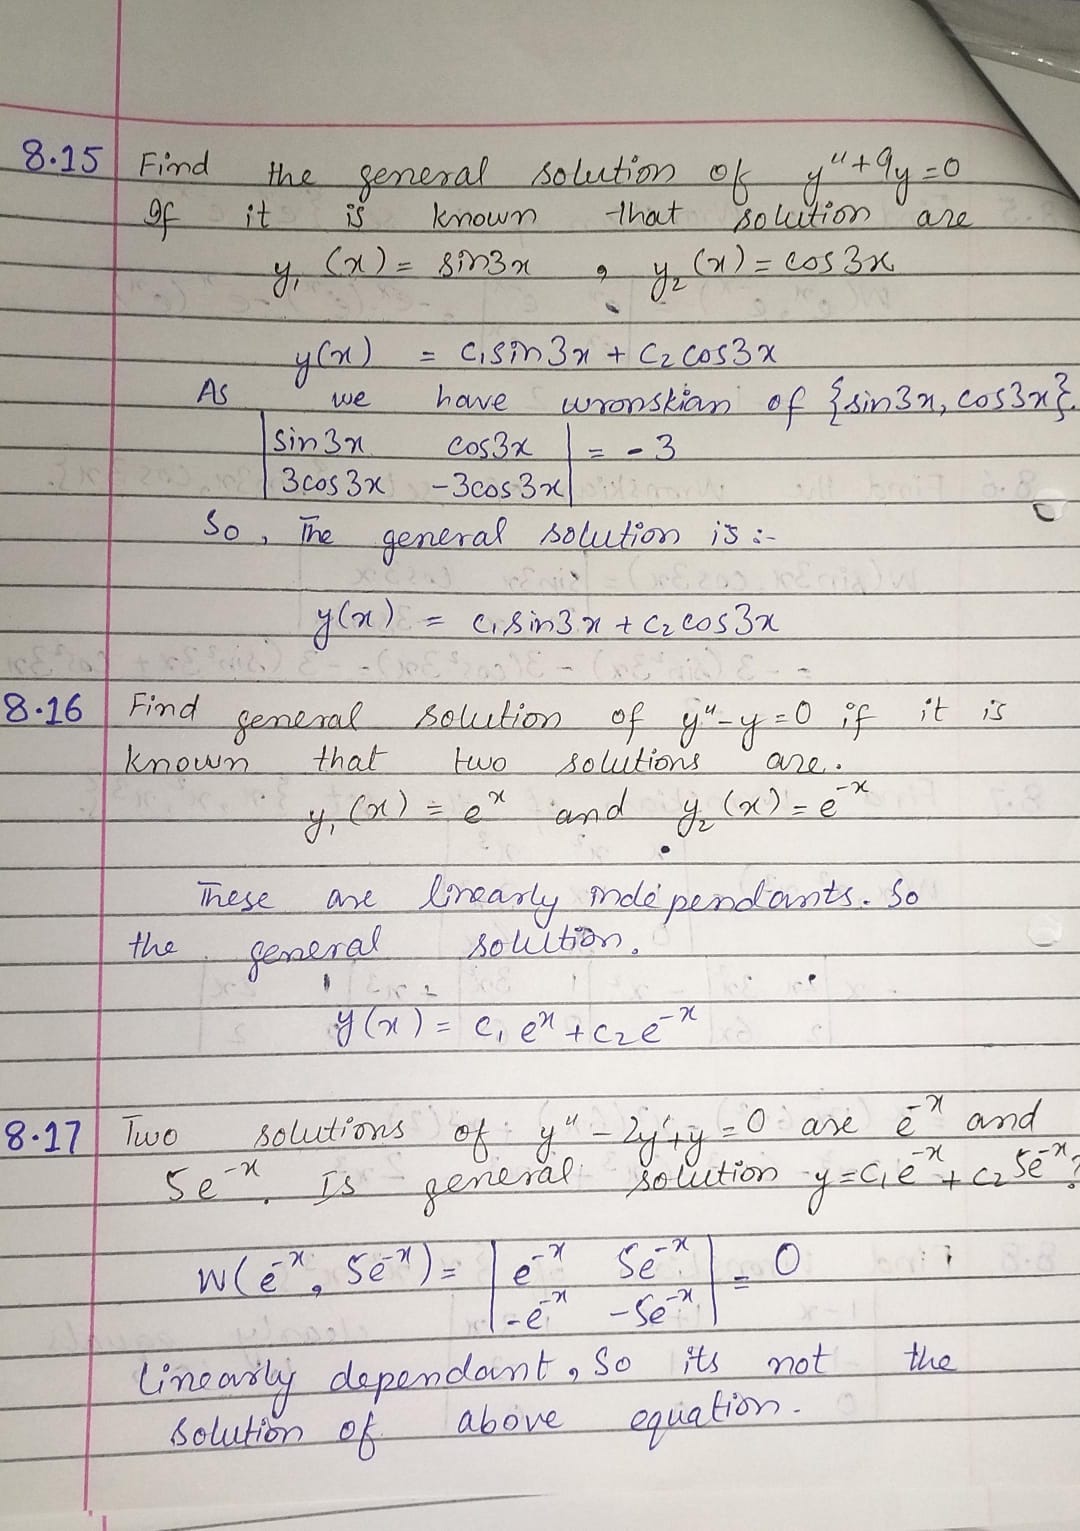 8.15 Find the general solution of y'' + 9y = 0
If it is known that solution are
y₁(x) = sin3x , y₂(x) = cos3x
y(x) = c₁sin3x + c₂cos3x
As we have wronskian of {sin3x, cos3x}.
|sin3x cos3x| = -3
|3cos3x -3cos3x|
So, The general solution is :-
y(x) = c₁sin3x + c₂cos3x
8.16 Find general solution of y'' - y = 0 if it is
known that two solutions are.
y₁(x) = eˣ and y₂(x) = e⁻ˣ
These are linearly independants. So
the general solution.
y(x) = c₁eˣ + c₂e⁻ˣ
8.17 Two solutions of y'' - 2y' + y = 0 are e⁻ˣ and
5e⁻ˣ. Is general solution y = c₁e⁻ˣ + c₂5e⁻ˣ?
W(e⁻ˣ, 5e⁻ˣ) = |e⁻ˣ 5e⁻ˣ| = 0
|-e⁻ˣ -5e⁻ˣ|
Linearily dependant, So its not the
solution of above equation.